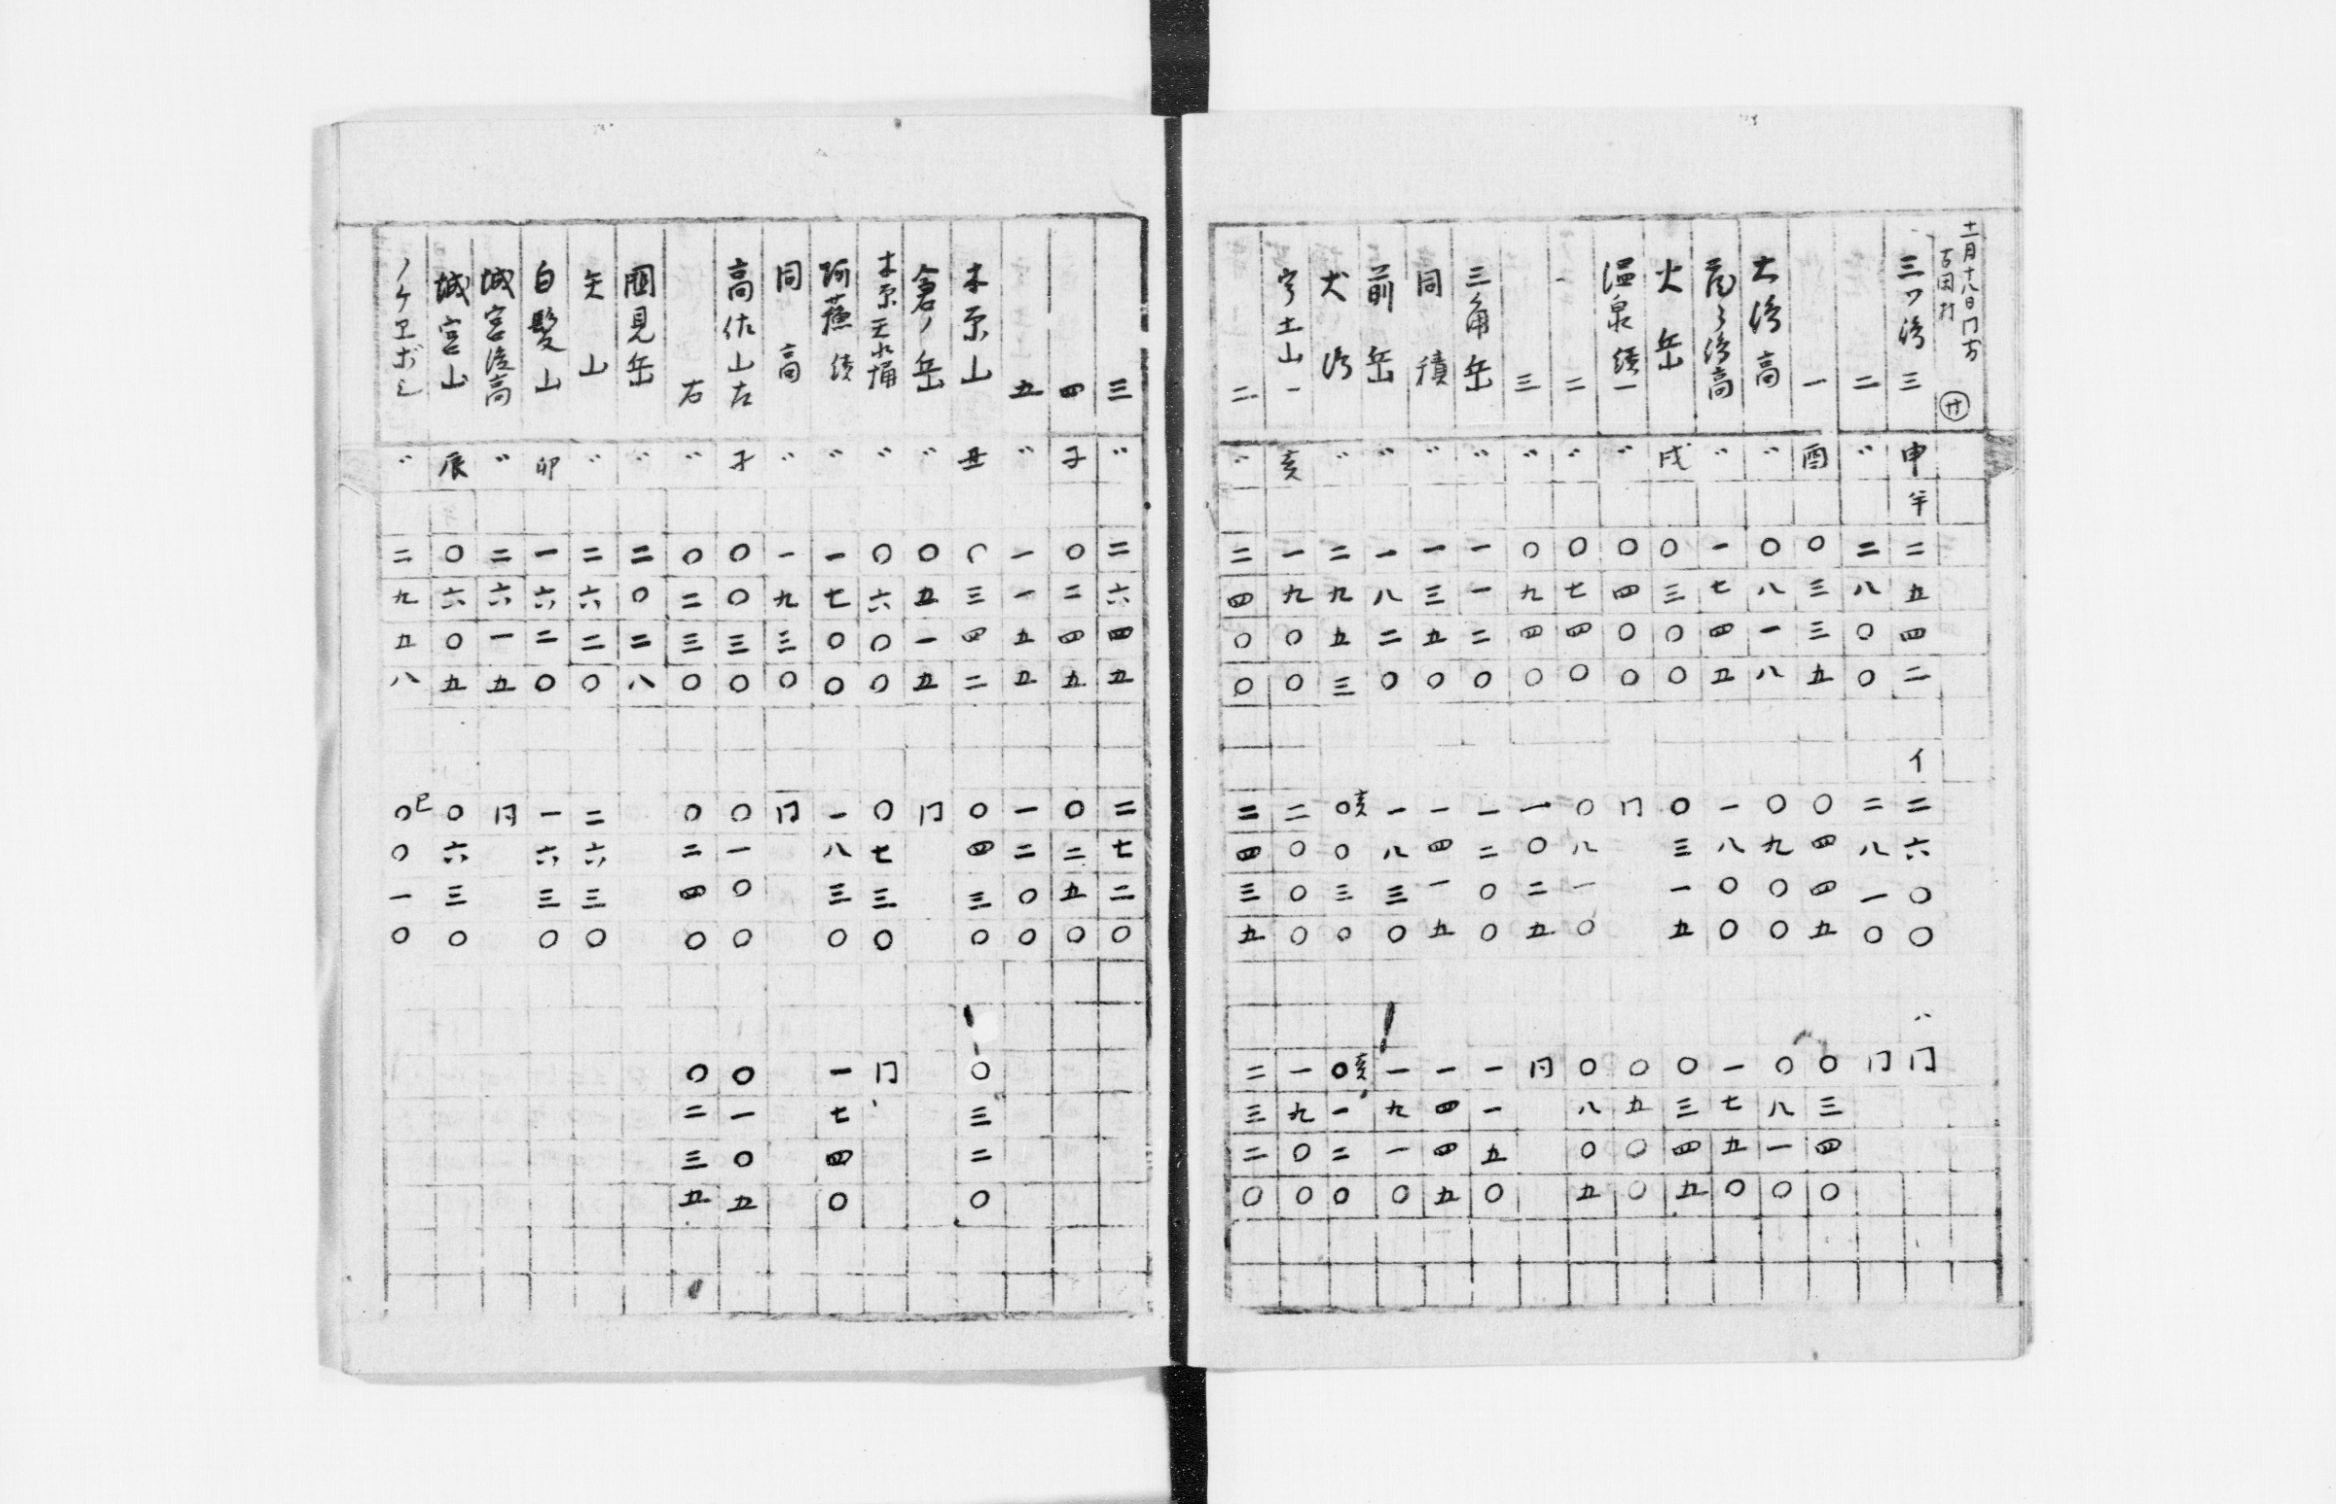 十一月十八日 同方 廿
三ツ 三 申半 二五四二 イ 二六〇〇 ハ 同
二 〃 二八〇〇 二八一〇 同
一 酉 〇三三五 〇四四五 〇三四〇
高 〃 〇八一八 〇九〇〇 〇八一〇
高 〃 一七四五 一八〇〇 一七五〇
火岳 戌 〇三〇〇 〇三一五 〇三四五
温泉 一 〃 〇四〇〇 同 〇五〇〇
二 〃 〇七四〇 〇八一〇 〇八〇五
三 〃 〇九四〇 一〇二五 同
三角岳 〃 一一二〇 一二〇〇 一一五〇
同 積 〃 一三五〇 一四一五 一四四五
前岳 〃 一八二〇 一八三〇 一九一〇
犬 〃 二九五三 亥〇〇三〇 亥〇一二〇
宇土山 一 亥 一九〇〇 二〇〇〇 一九〇〇
二 〃 二四〇〇 二四三五 二三二〇
三 〃 二六四五 二七二〇
四 子 〇二四五 〇二五〇
五 〃 一一五五 一二〇〇
木原山 丑 〇三四二 〇四三〇 〇三二〇
倉ノ岳 〃 〇五一五 同
木原 〃 〇六〇〇 〇七三〇 同
阿蘓 〃 一七〇〇 一八三〇 一七四〇
同 高 〃 一九三〇 同
高佐山左 子 〇〇三〇 〇一〇〇 〇一〇五
右 〃 〇二三〇 〇二四〇 〇二三五
國見岳 〃 二〇二八
矢山 〃 二六二〇 二六三〇
白髪山 卯 一六二〇 一六三〇
城宮後高 〃 二六一五 同
城宮山 辰 〇六〇五 〇六三〇
ノケヱボシ 〃 二九五八 巳〇〇一〇